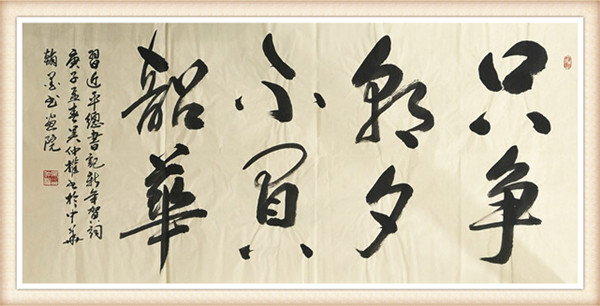 只争
朝夕
不负
韶華
習近平總書記新年賀詞
庚子孟春吴仲權書於中華
翰墨書画院